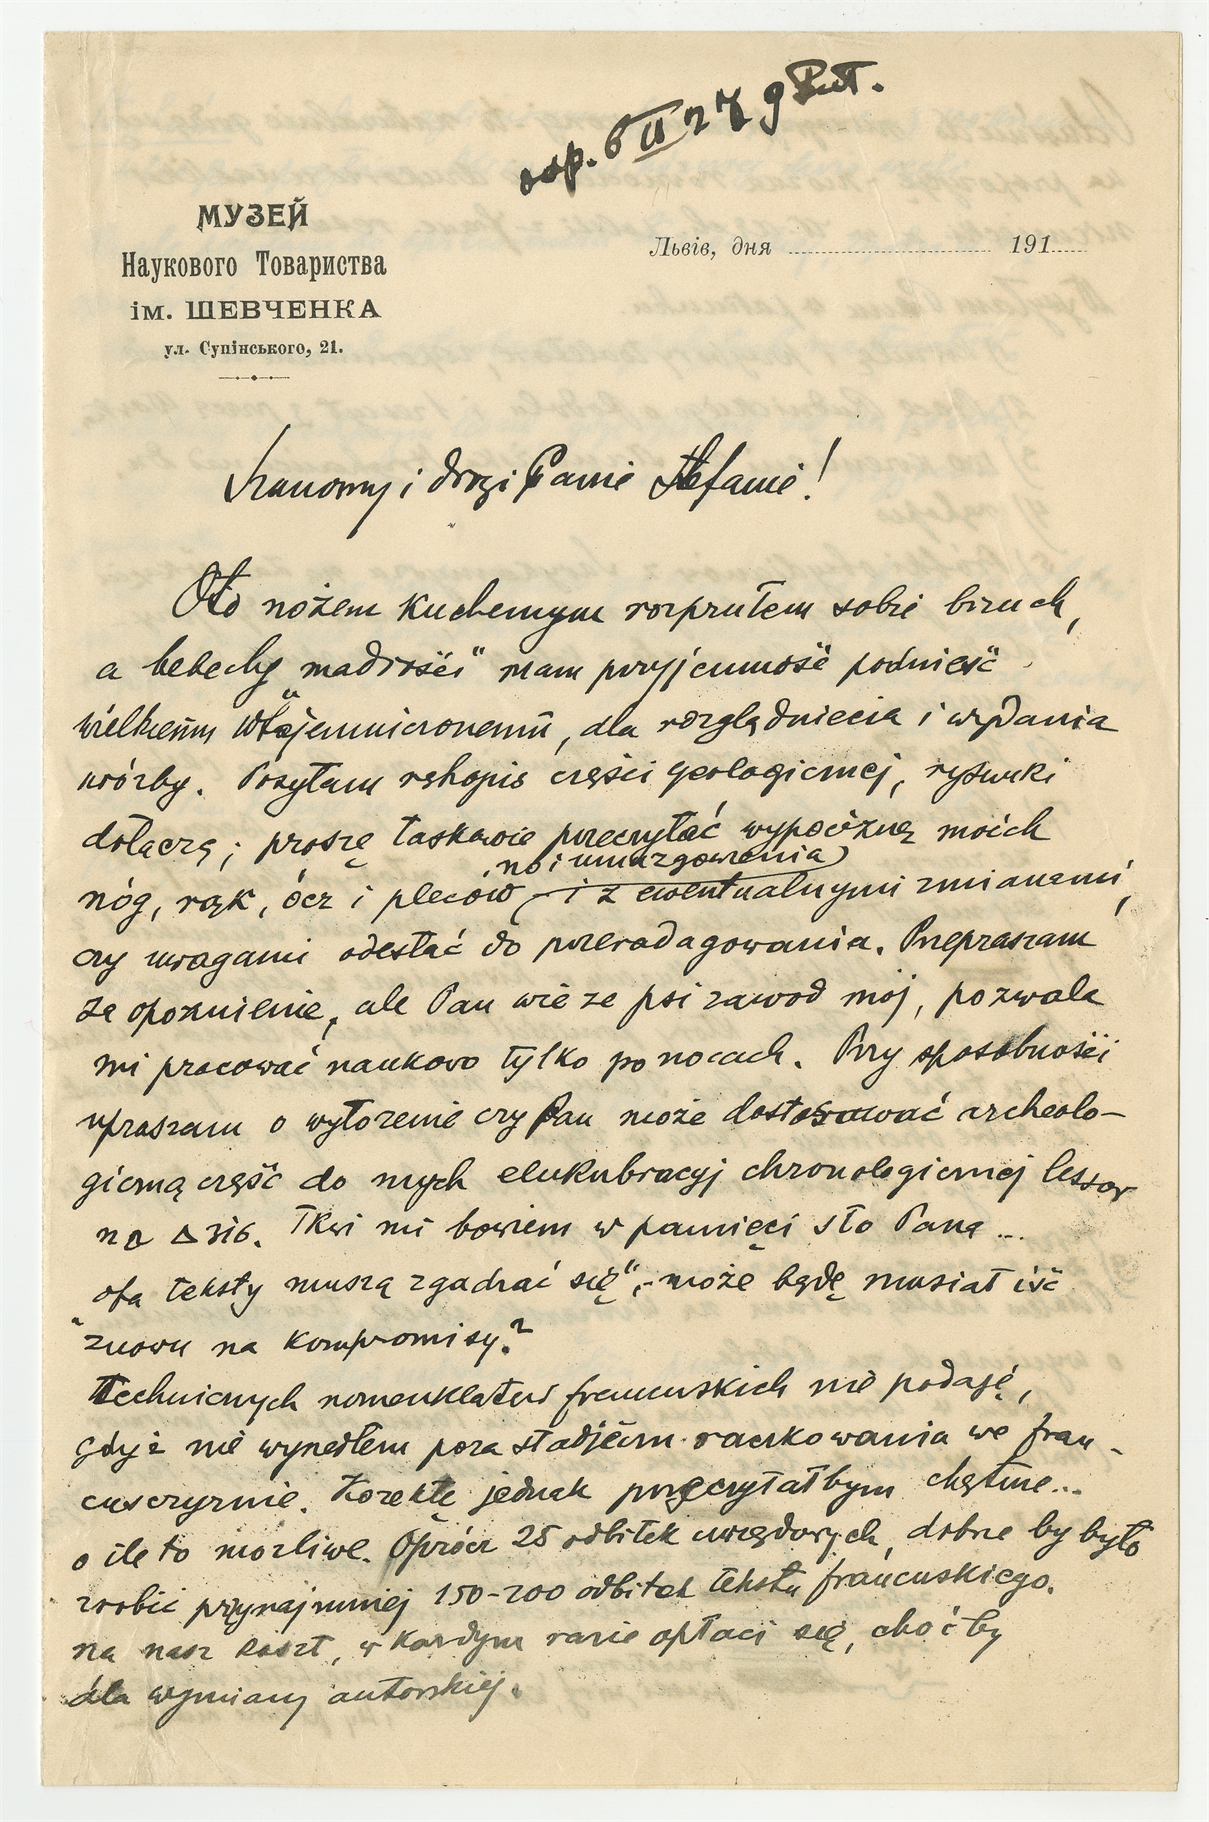 odp. 6 II 27
МУЗЕЙ
Наукового Товариства
ім. ШЕВЧЕНКА
ул. Супінського, 21.
Львів, дня 191
Szanowny i drogi Panie Stefanie!
Oto nożem kuchennym rozprułem sobie brzuch,
a bebechy „mądrości" mam przyjemność podnieść
wielkiemu Wtajemniczonemu, dla rozglądnięcia i wydania
wróżby. Posyłam rękopis części geologicznej, rysunki
dołączę; proszę łaskawie przeczytać wypociznę moich
no i umózgowienia
nóg, rąk, ócz i pleców i z ewentualnymi zmianami,
czy uwagami odesłać do przeradagowania. Przepraszam
za opoznienie, ale Pan wie ze psi zawod mój, pozwala
mi pracować naukowo tylko po nocach. Przy sposobności
upraszam o wyłożenie czy Pan może dostosować archeolo-
giczną część do mych elukubracyj chronologicznej lessow
na Δ 316. Tkwi mi bowiem w pamięci sło Pana ...
„oba teksty muszą zgadzać się", - może będę musiał iść
znowu na kompromisy?
Technicznych nomenklatur francuskich nie podaję,
gdyż nie wyszedłem poza stadjum raczkowania we fran-
cuszczyznie. Korektę jednak przeczytałbym chętnie...
o ile to możliwe. Oprócz 25 odbitek urzędowych, dobrze by było
zrobić przynajmniej 150-200 odbitek tekstu francuskiego.
na nasz koszt, w kazdym razie opłaci się, choćby
dla wymiany autorskiej.